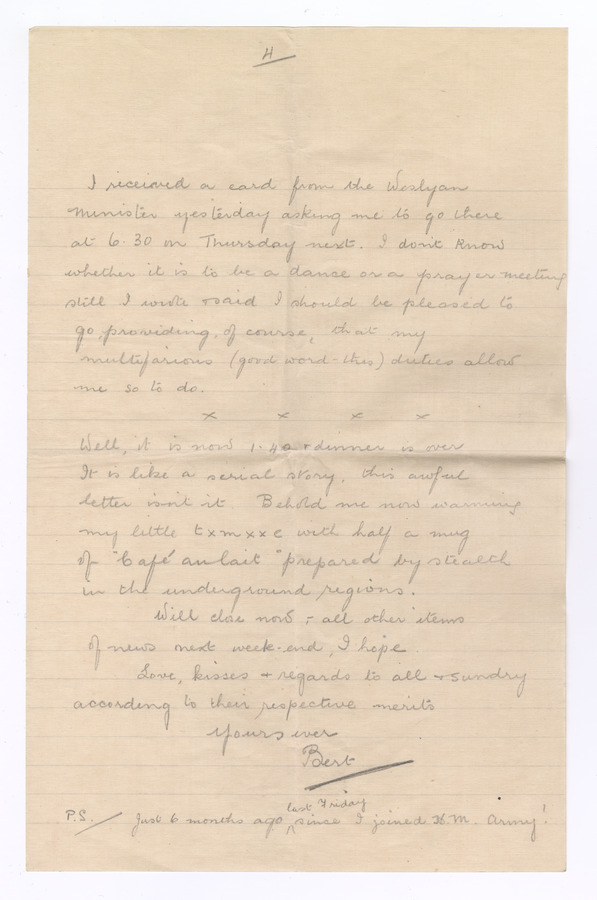 4
I received a card from the Weslyan
Minister yesterday asking me to go there
at 6.30 on Thursday next. I dont know
whether it is to be a dance or a prayer meeting
still I wrote + said I should be pleased to
go, providing, of course, that my
multifarious (good word - this) duties allow
me so to do.
x x x x
Well, it is now 1.40 + dinner is over
It is like a serial story, this awful
letter isn't it. Behold me now warming
my little txmxxc with half a mug
of "Café au lait" prepared by stealth
in the underground regions.
Will close now - all other items
of news next week-end, I hope.
Love, kisses + regards to all + sundry
according to their respective merits
Yours ever
Bert
last Friday
P.S. Just 6 months ago since I joined H.M. Army!